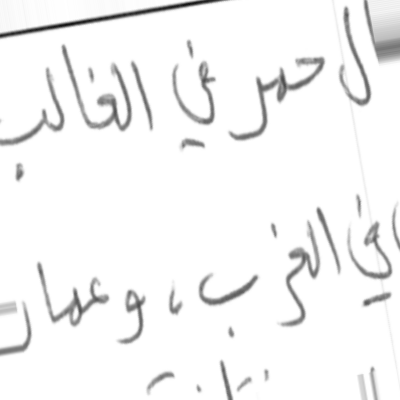 ل حمر في الغالب
في الغرب، وعمان